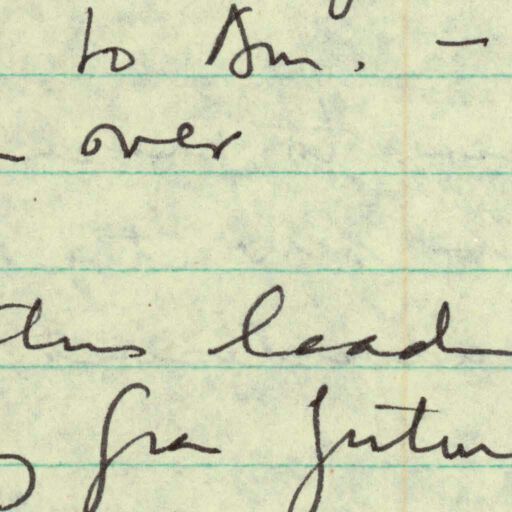 to Am. –
over
this lead
for futur